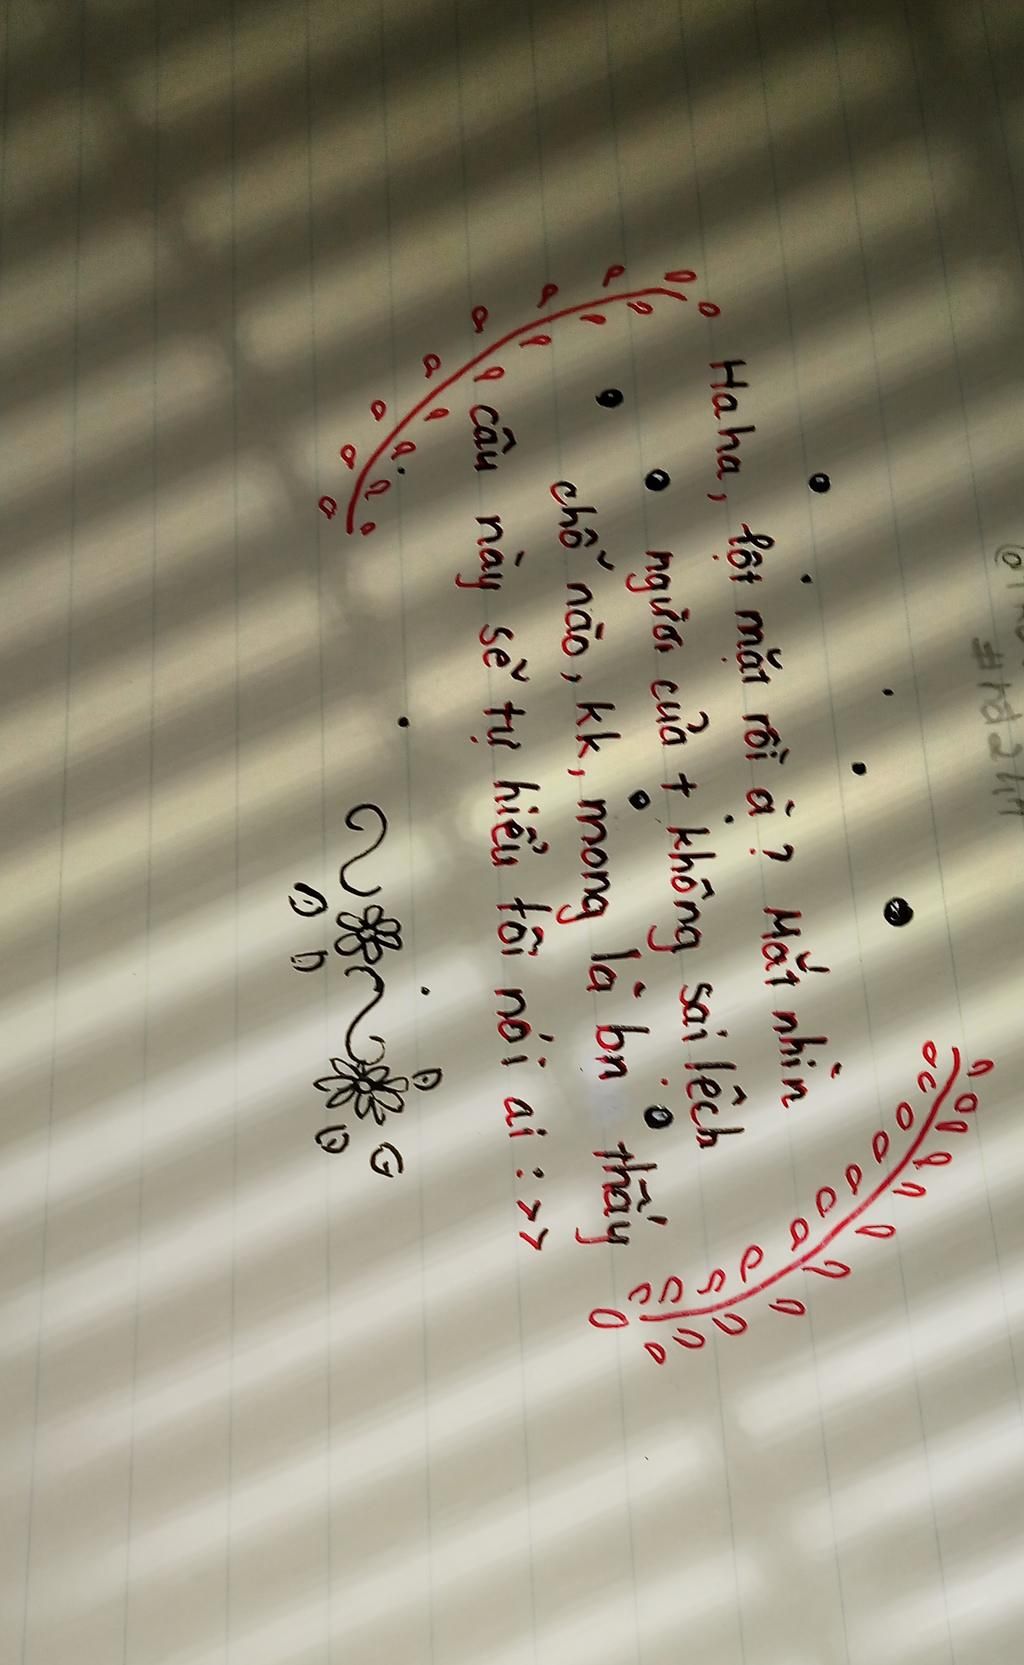 Haha, lột mặt rồi à? Mắt nhìn
người của t không sai lệch
chỗ nào, kk, mong là bn thấy
câu này sẽ tự hiểu tôi nói ai :>>